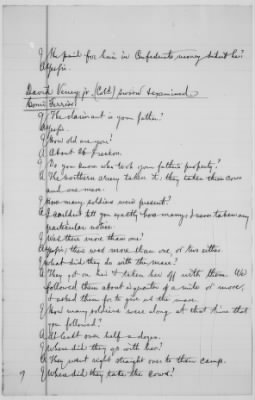 Q He paid for him in Confederate money didn't he?
A Yes sir.
David Veney jr. (Col'd) sworn & examined
Comr Ferriss:
Q The claimant is your father?
A Yes sir.
Q How old are you?
Q About 26 I reckon.
Q Do you know who took your father's property?
A The southern army taken it; they taken three cows
and one mare.
Q How many soldiers were present?
A I couldn't tell you exactly how many; I never taken any
particular notice.
Q Was there more than one?
A Yes sir; there was more than one, or two either.
Q What did they do with the mare?
A They got on her & taken her off with them. We
followed them about a quarter of a mile or more,
& asked them for to give us the mare.
Q How many soldiers were along at that time that
you followed?
A At least over half a dozen.
Q Where did they go with her?
A They went right straight over to their camp.
Q When did they take the cows?